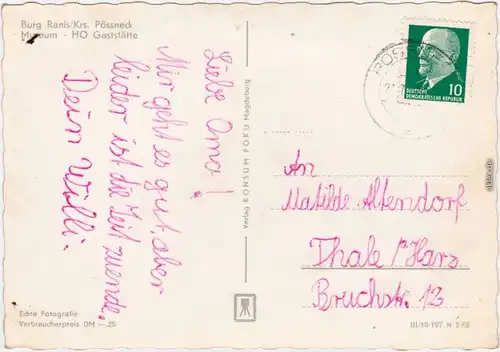 Burg Ranis/Krs. Pössneck
Museum - HO Gaststätte
Liebe Oma!
Mir geht es gut, aber
leider ist die Zeit zuende.
Dein Willi.
Echte Fotografie
Verbraucherpreis DM —.25
Verlag KONSUM FOKU Magdeburg
10
DEUTSCHE
DEMOKRATISCHE REPUBLIK
An
Matilde Altendorf
Thale / Harz
Bruchstr. 12
III/18/197 N 2/62